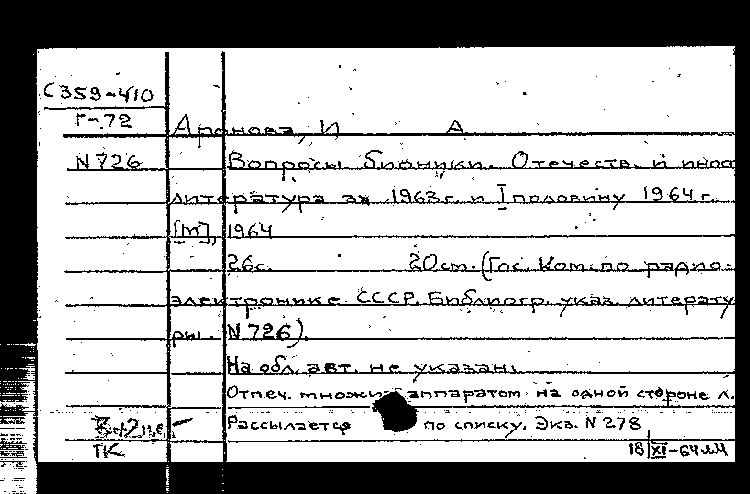 С359-410
Г-72
Аронова, И А
N 726 Вопросы бионики. Отечеств. и иностр
литература за 1963 г. и I половину 1964 г.
[М], 1964
26с. 20см. (Гос. Ком. по радио-
электронике СССР. Библиогр. указ. литерату
ры. N 726).
На обл. авт. не указан.
Отпеч. множит аппаратом на одной стороне л.
Рассылается по списку. Экз. N 278
ТК 18 XI-64